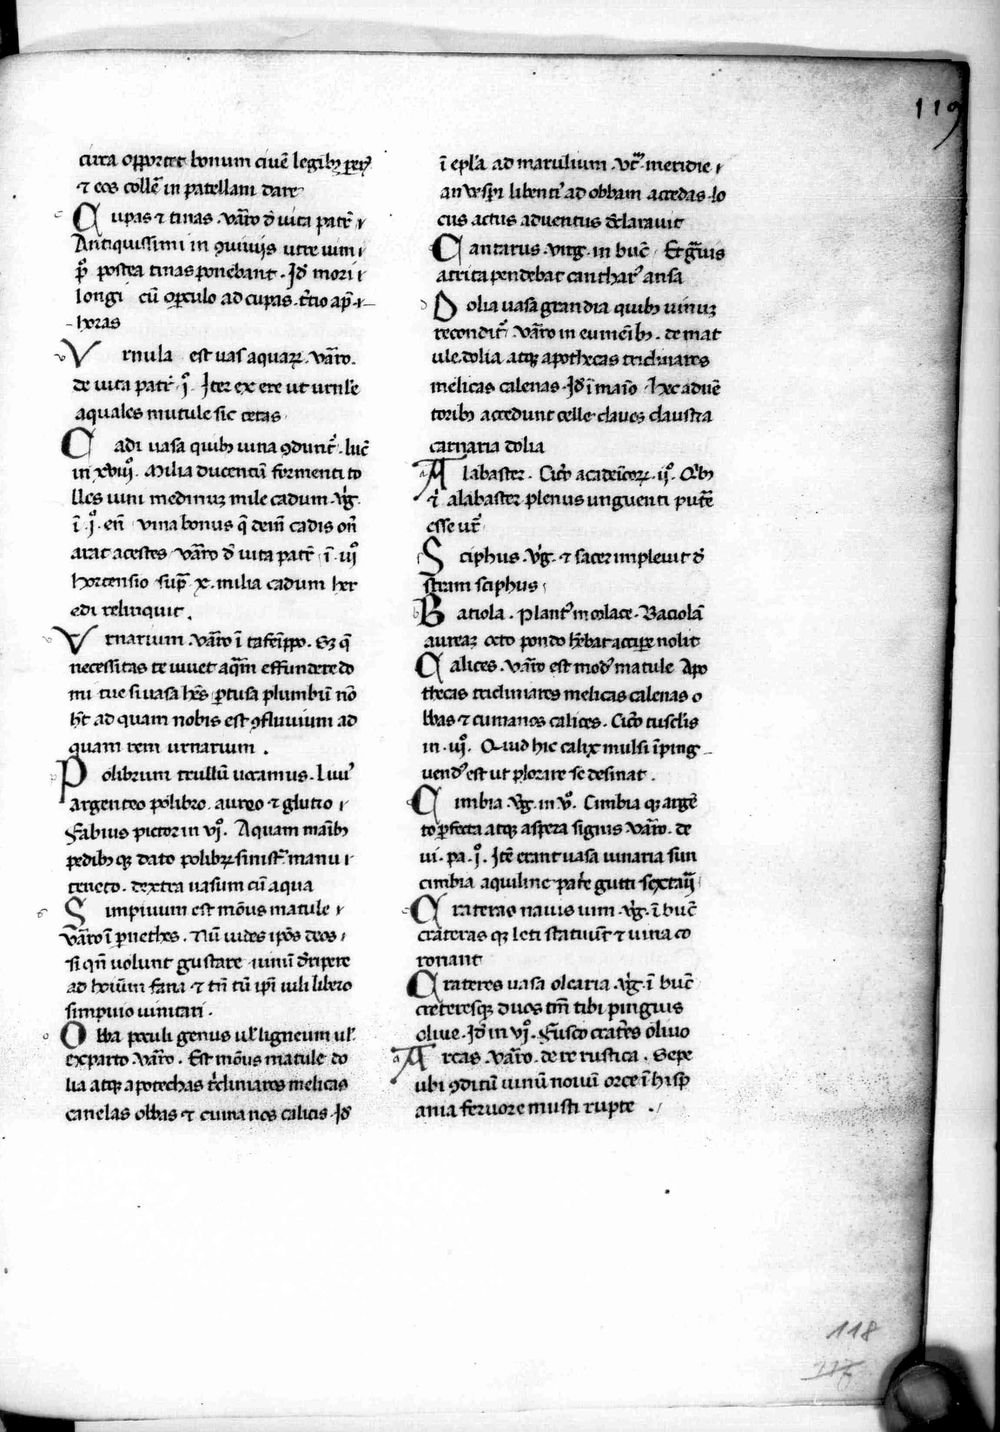 119
cura opportet bonum ciuē legibꝫ parer̄
⁊ eos collē in patellam dare
Cupas ⁊ tinas . vaͬro đ uita patꝛ̄
Antiquissimi in ꝯuiuijs utre uini
p̄ postea tinas ponebant . Jđ mori
longi cū oꝑculo ad cupas . t̄tio ap̄
horas
Vrnula est uas aquaꝝ . vaͬro .
de uita patꝛ̄ . i͛ . Jter ex ere ut urnle
aquales mutule sic cetas
Cadi uasa quibꝫ uina ꝯdunt̄ . luc̄
in xviij͛ . Milia ducentū formenti to
lles uini medinuꝫ mile cadum . v̄g
ī . i͛ . en̄ vina bonus q̄ dein̄ cadis on̄
arat acestes vaͬro đ uita patꝛ̄ . ī . iij͛
hortensio sup̄ . x . milia cadum her
edi relinquit .
Vrnarium . vaͬro ī tafēippo . Sꝫ q̄
necessitas te iuuet aq̄m effundere do
mi tue si uasa hēs ꝑtusa plumbū nō
hēt ad quam nobis est ꝯfluuium ad
quam rem urnarium .
Polibrum trullū uocamus . Liui͛
argenteo polibro . aureo ⁊ glutro
Fabius pictor in vj͛ . Aquam manibꝫ
pedibꝫ qꝫ dato polibꝝ sinist͛ manu
teneto . dextra uasum cū aqua
Simpiuum est mōus matule
vaͬro ī ꝑnethes . Nū uides ipōs deos
si qn̄ uolunt gustare uinū đripere
ad hoīum fana ⁊ tn̄ tū ip̄i uili libero
simpuio uinitari .
Obba poculi genus ul̄ ligneum ul̄
exparto . vaͬro . Est mōus matule do
lia atqꝫ apotechas t͛cliniares melicas
canelas obbas ⁊ cumanos calicis . Jđ
ī epl̄a ad marulium . vtꝝ meridie
an uesꝑi libenti͛ ad obbam accedas . lo
cus actus aduentus declarauit
Cantarus . virg . in buc̄ Et gͣuis
attrita pendebat canthar͛ ansa
Dolia uasa grandia quibꝫ uinuꝫ
recondit̄ . vaͬro in eumēibꝫ . de mat
ule . dolia atqꝫ apothecas tricliniares
melicas calenas . Jđ ī maīo . Hec aduē
toribꝫ accedunt celle claues claustra
carnaria dolia
Alabaster . Cic͛o acadeīcoꝝ . ij͛ . Qͥbꝫ
ēt alabaster plenus unguenti putē
esse ut̄
Sciphus . v̄g . ⁊ sacer impleuit đ
stram sciphus
Batiola . plant͛ in colace . Baciolā
aureaꝫ octo pondo h̄bat accipe nolit
Calices . vaͬro est mođ matule Apo
thecas tricliniares melicas calenas o
bbas ⁊ cumanos calices . Cic͛o tusclis
in . iij͛ . Quid hic calix mulsi īping
uend͛ est ut plorare se desinat .
Cimbia . v̄g . in v͛ . Cimbia qꝫ argē
to ꝑfecta atqꝫ aspera signis vaͬro . de
ui . pa . i͛ . Jtē erant uasa uinaria sun
cimbia aquiline patē gutti sextarij
Crateras nauis uim . v̄g . ī buc̄
crāteras qꝫ leti statuūt ⁊ uina co
ronant
Crateres uasa olearia . v̄g . ī buc̄
creteresqꝫ duos tm̄ tibi pinguis
oliue . Jđ in vj͛ . Fusco crat̄es oliuo
Arcas . vaͬro . de re rustica . Sepe
ubi ꝯditū uinū nouū orce ī hisp
ania feruore musti rupte .
118